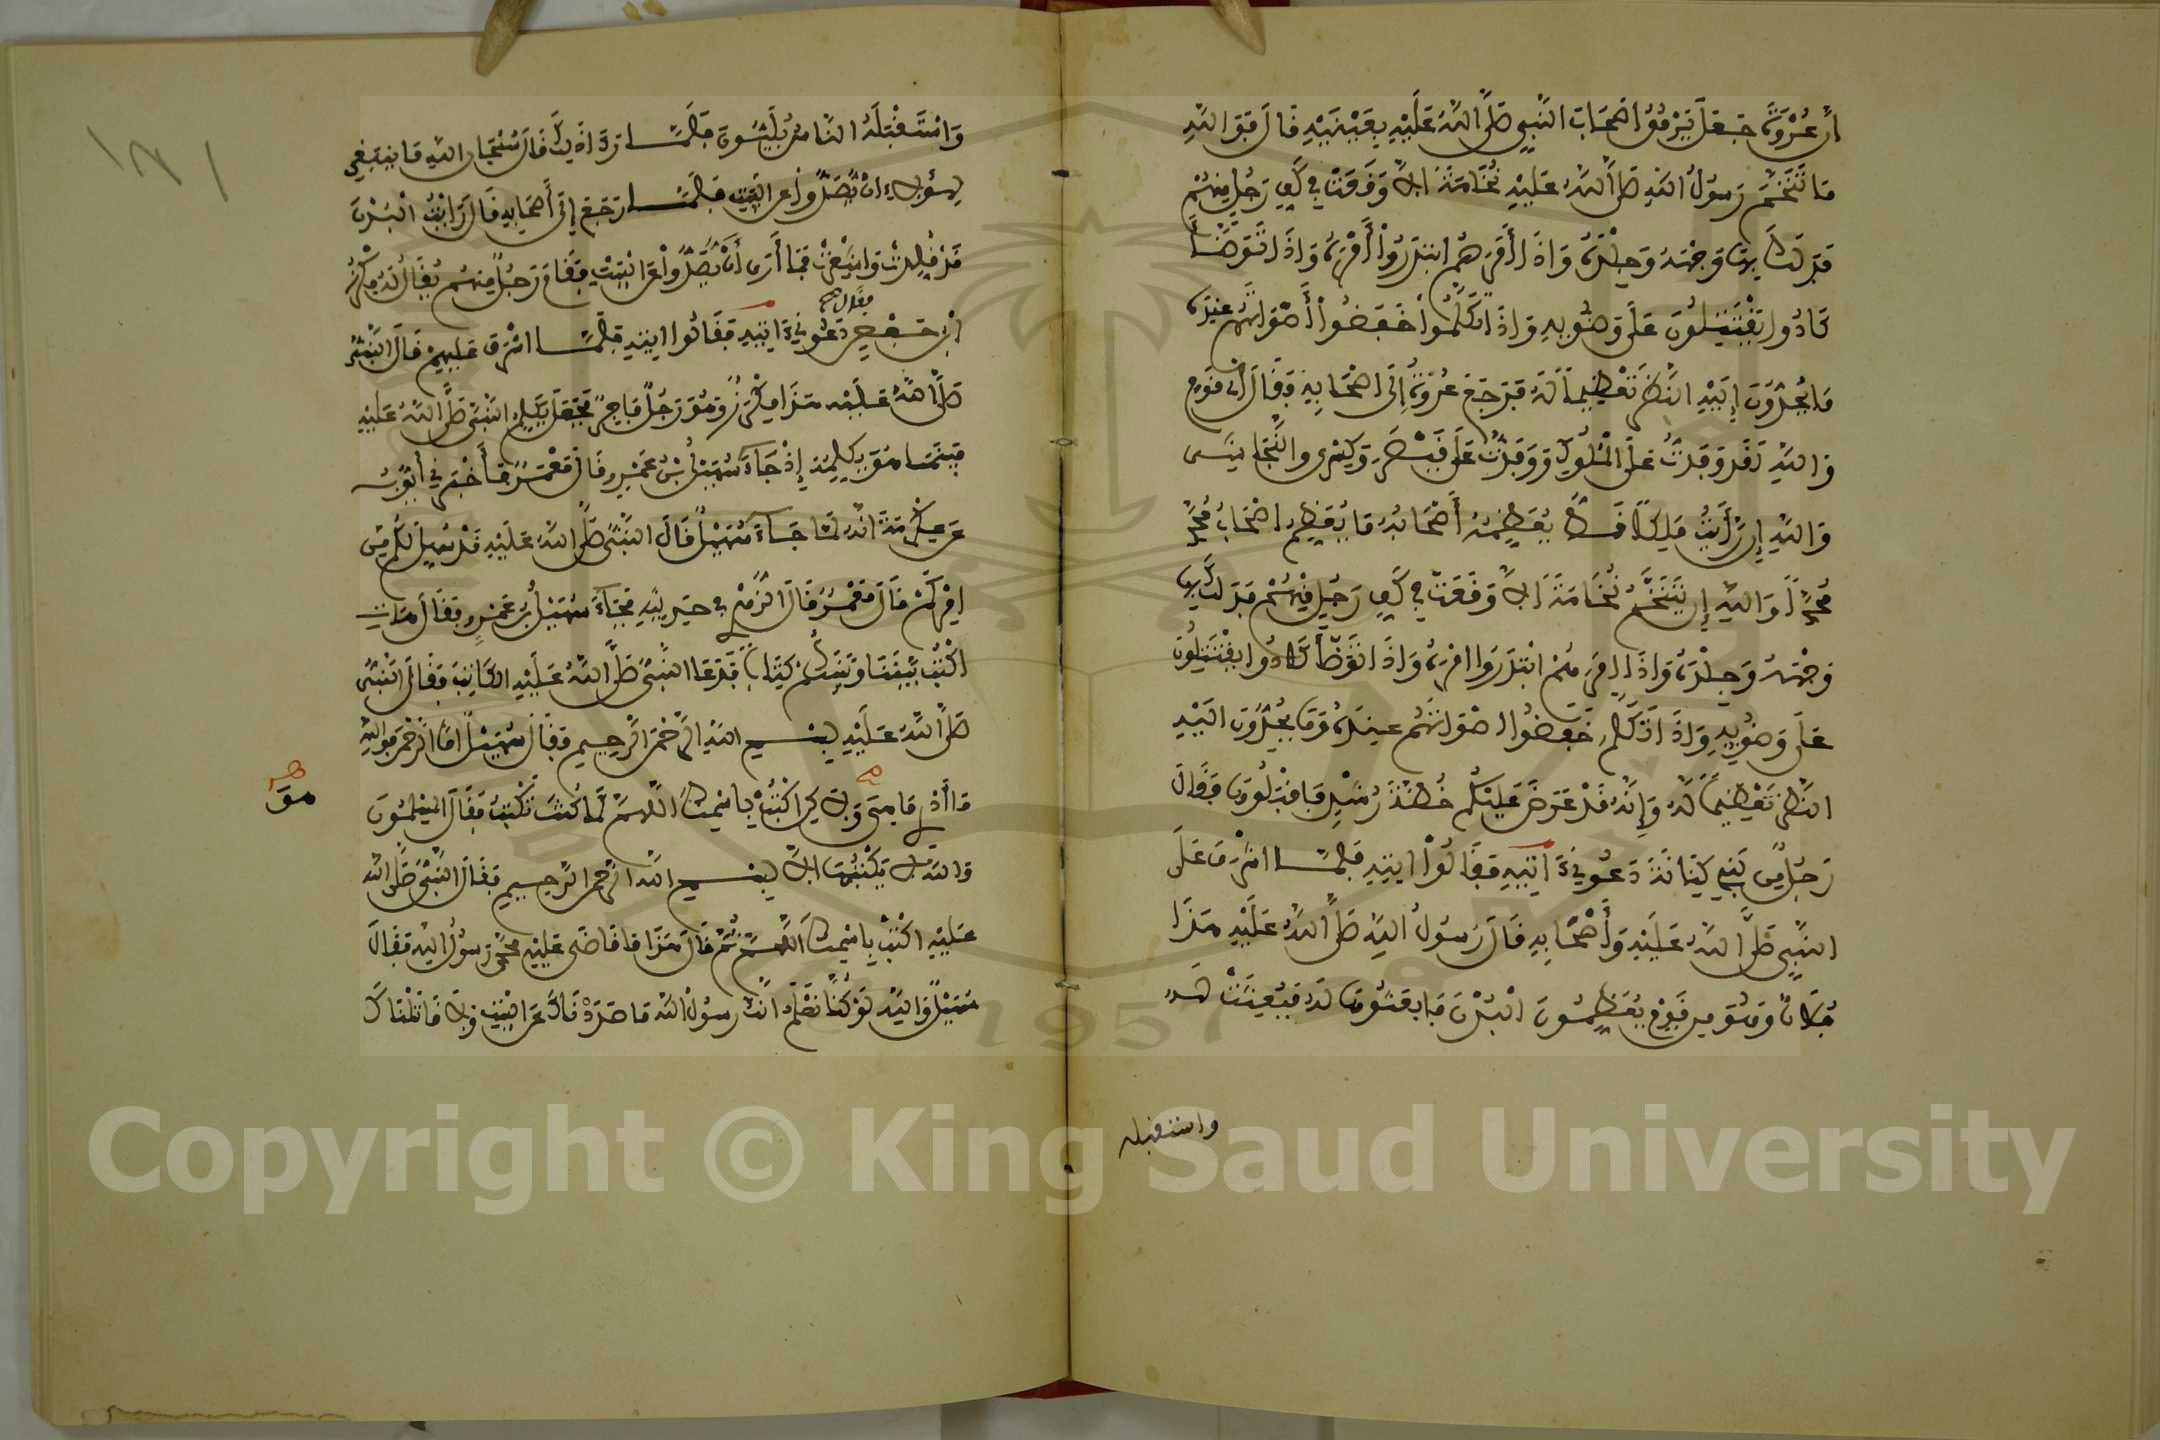 أن عروة جعل يرمق أصحاب النبي صلى الله عليه بعينيه قال فوالله
ما تنخم رسول الله صلى الله عليه نخامة إلا وقعت في كف رجل منهم
فدلك بها وجهه وجلده وإذا أمرهم ابتدروا أمره وإذا توضأ
كادوا يقتتلون على وضوئه وإذا تكلموا خفضوا أصواتهم عنده
وما يحدون إليه النظر تعظيما له فرجع عروة إلى أصحابه فقال أي قوم
والله لقد وفدت على الملوك ووفدت على قيصر وكسرى والنجاشي
والله إن رأيت ملكا قط يعظمه أصحابه ما يعظم أصحاب محمد
محمدا والله إن يتنخم نخامة إلا وقعت في كف رجل منهم فدلك بها
وجهه وجلده وإذا أمرهم ابتدروا أمره وإذا توضأ كادوا يقتتلون
على وضوئه وإذا تكلم خفضوا أصواتهم عنده وما يحدون إليه
النظر تعظيما له وإنه قد عرض عليكم خطة رشد فاقبلوها فقال
رجل من بني كنانة دعوني آتيه فقالوا ايته فلما أشرف على
النبي صلى الله عليه وأصحابه قال رسول الله صلى الله عليه هذا
فلان وهو من قوم يعظمون البدن فابعثوها له فبعثت له
واستقبله
واستقبله الناس يلبون فلما رأى ذلك قال سبحان الله ما ينبغي
لهؤلاء أن يصدوا عن البيت فلما رجع إلى أصحابه قال رأيت البدن
قد قلدت وأشعرت فما أرى أن يصدوا عن البيت فقام رجل منهم يقال له مكرز
فقال
بن حفص دعوني آتيه فقالوا ايته فلما أشرف عليهم قال النبي
صلى الله عليه هذا مكرز وهو رجل فاجر فجعل يكلم النبي صلى الله عليه
فبينما هو يكلمه إذ جاء سهيل بن عمرو قال معمر فأخبرني أيوب
عن عكرمة أنه لما جاء سهيل قال النبي صلى الله عليه قد سهل لكم من
أمركم قال معمر قال الزهري في حديثه فجاء سهيل بن عمرو فقال هات
اكتب بيننا وبينكم كتابا فدعا النبي صلى الله عليه الكاتب فقال النبي
صلى الله عليه بسم الله الرحمن الرحيم فقال سهيل أما الرحمن فوالله
ما أدري ما هي ولكن اكتب باسمك اللهم كما كنت تكتب فقال المسلمون
هو
والله لا يكتبها إلا بسم الله الرحمن الرحيم فقال النبي صلى الله
عليه اكتب باسمك اللهم ثم قال هذا ما قاضى عليه محمد رسول الله فقال
سهيل والله لو كنا نعلم أنك رسول الله ما صددناك عن البيت ولا قاتلناك
Copyright © King Saud University
1957